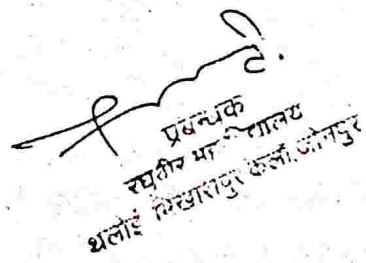 प्रबन्धक
रघुवीर महाविद्यालय
थलोई भिखारीपुर कला, जौनपुर